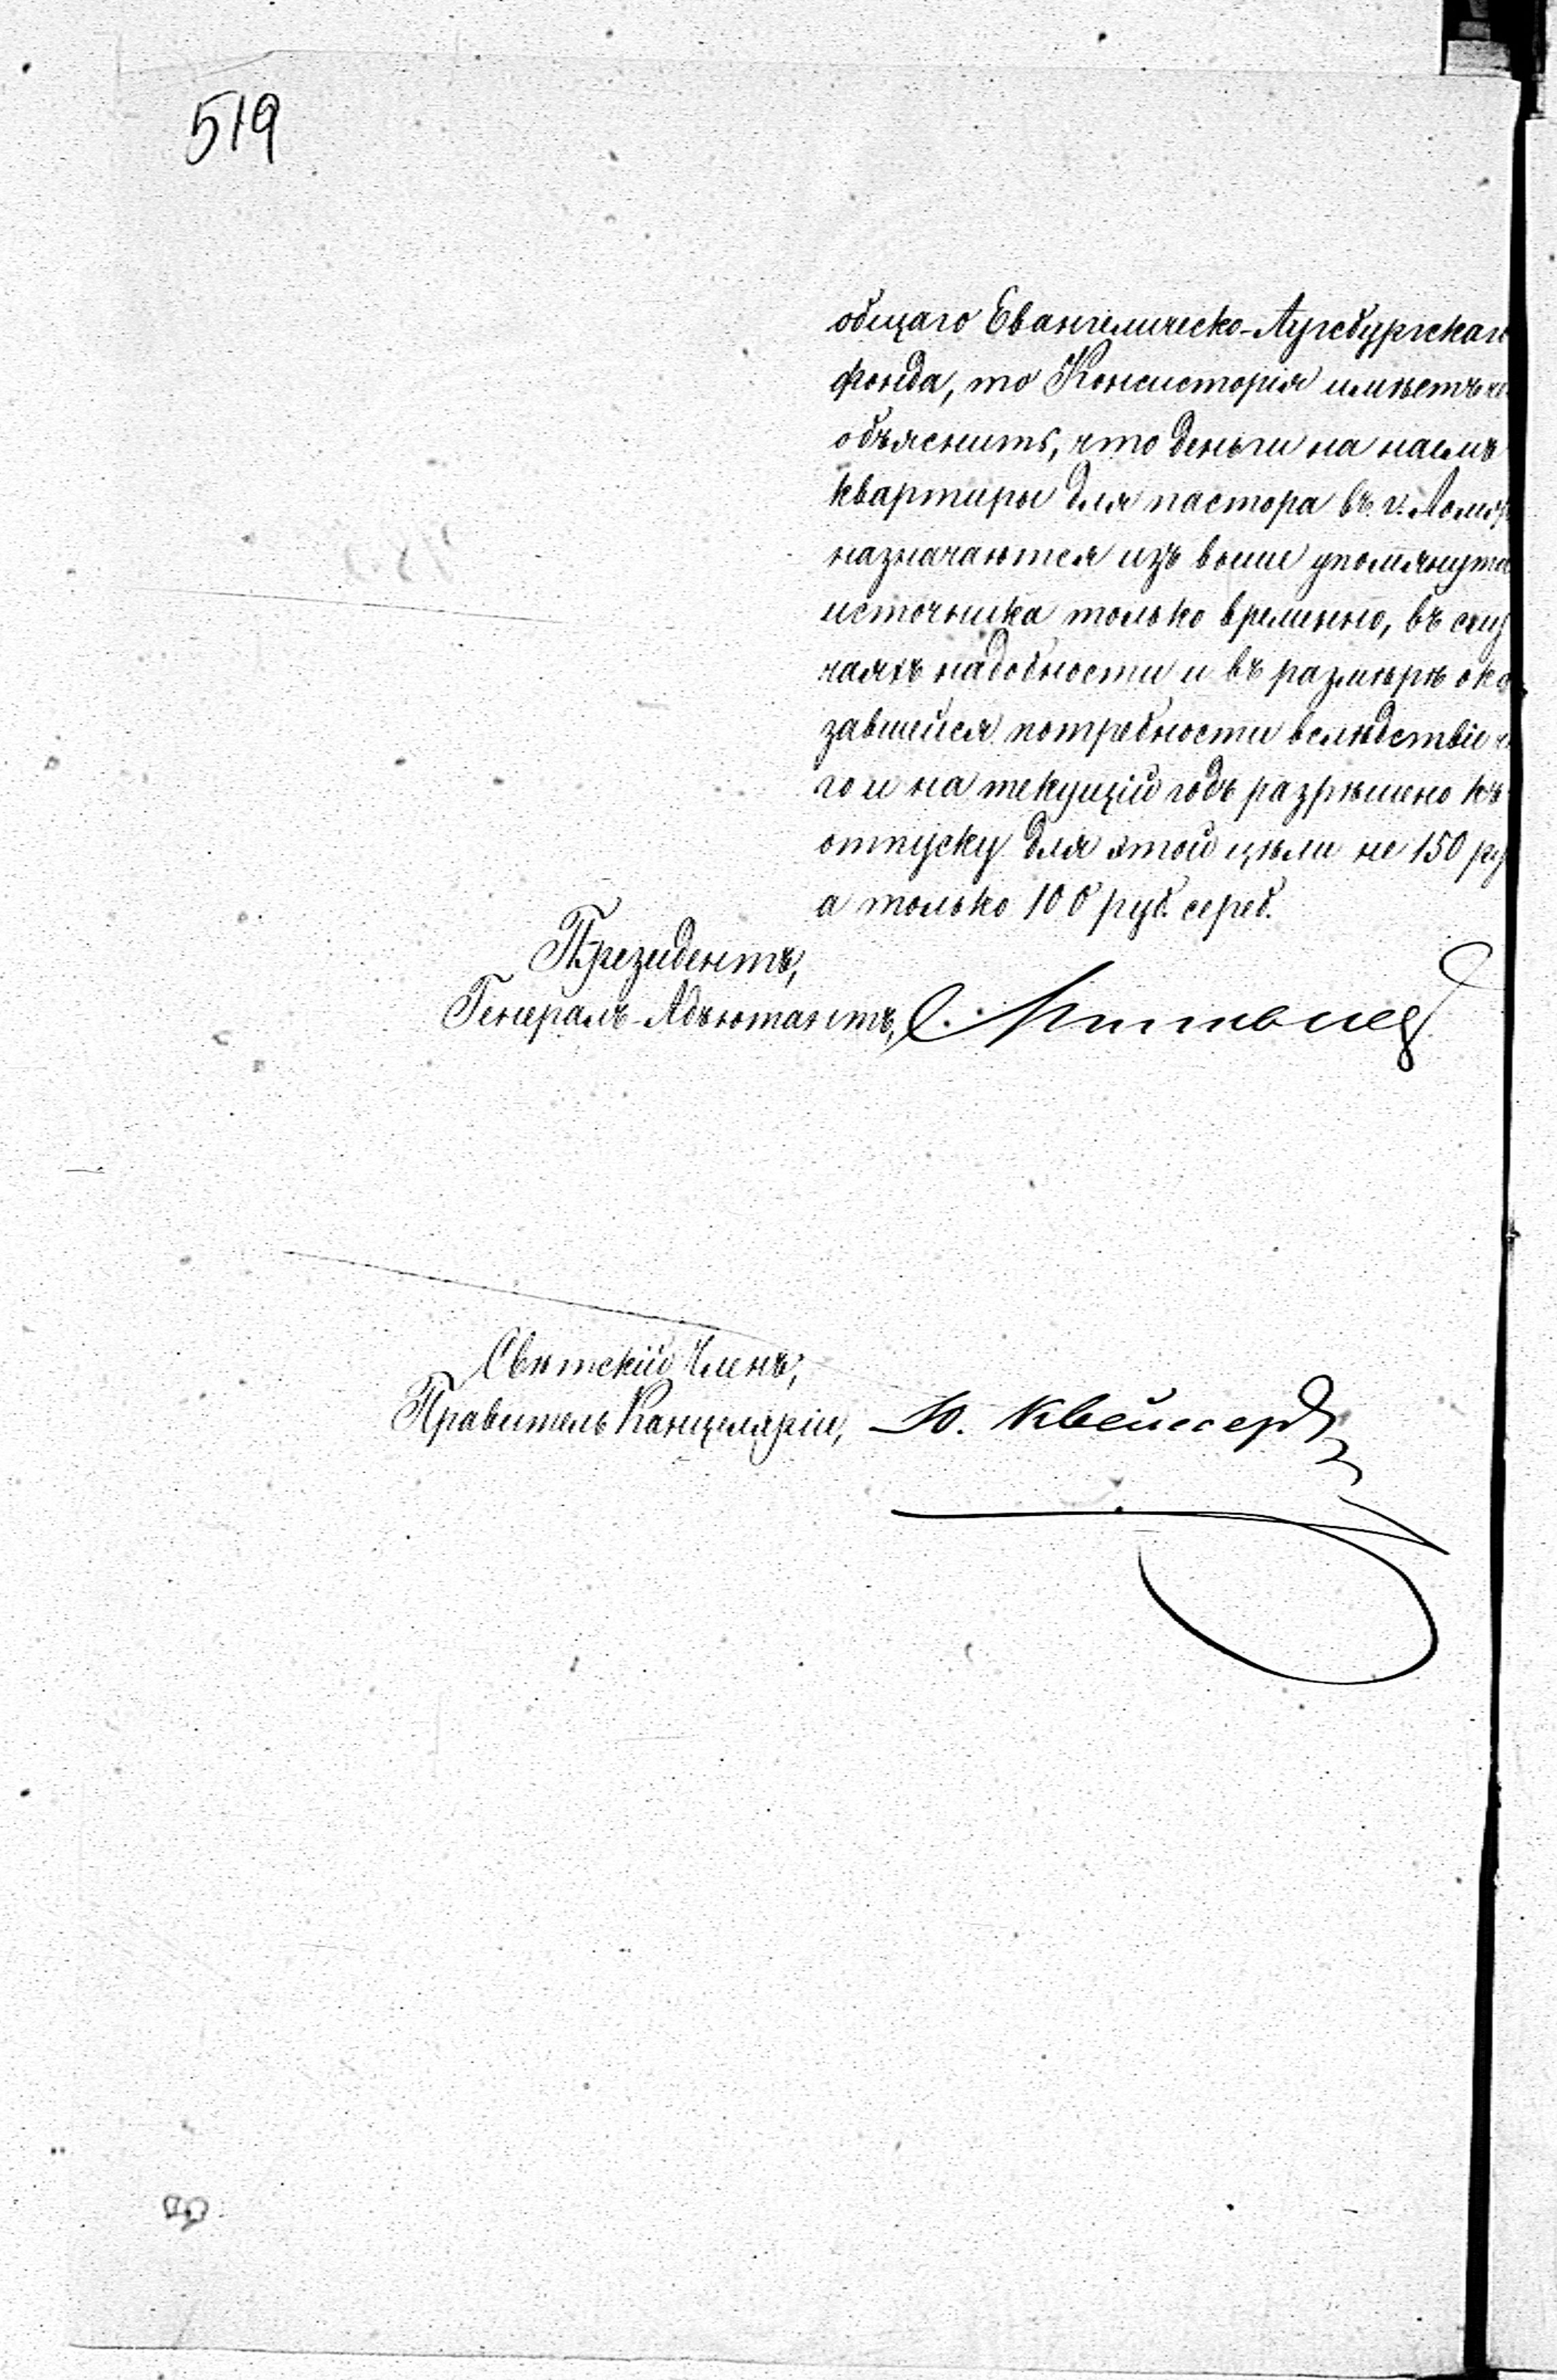 519
общаго Евангелическо-Аугсбургскаг
фонда, то Консисторія имѣетъ
объяснить, что деньги на наемъ
квартиры для пастора въ г. Ломж
назначаются изъ выше упомянута
источника только временно, въ слу
чаяхъ надобности и въ размѣрѣ ока
завшейся потребности вслѣдствіе ч
го и на текущій годъ разрѣшено къ
отпуску для этой цѣли не 150 ру
а только 100 руб. сереб.
Президентъ,
Генералъ-Адъютантъ,
Свѣтскій Членъ,
Правитель Канцеляріи, Ю.